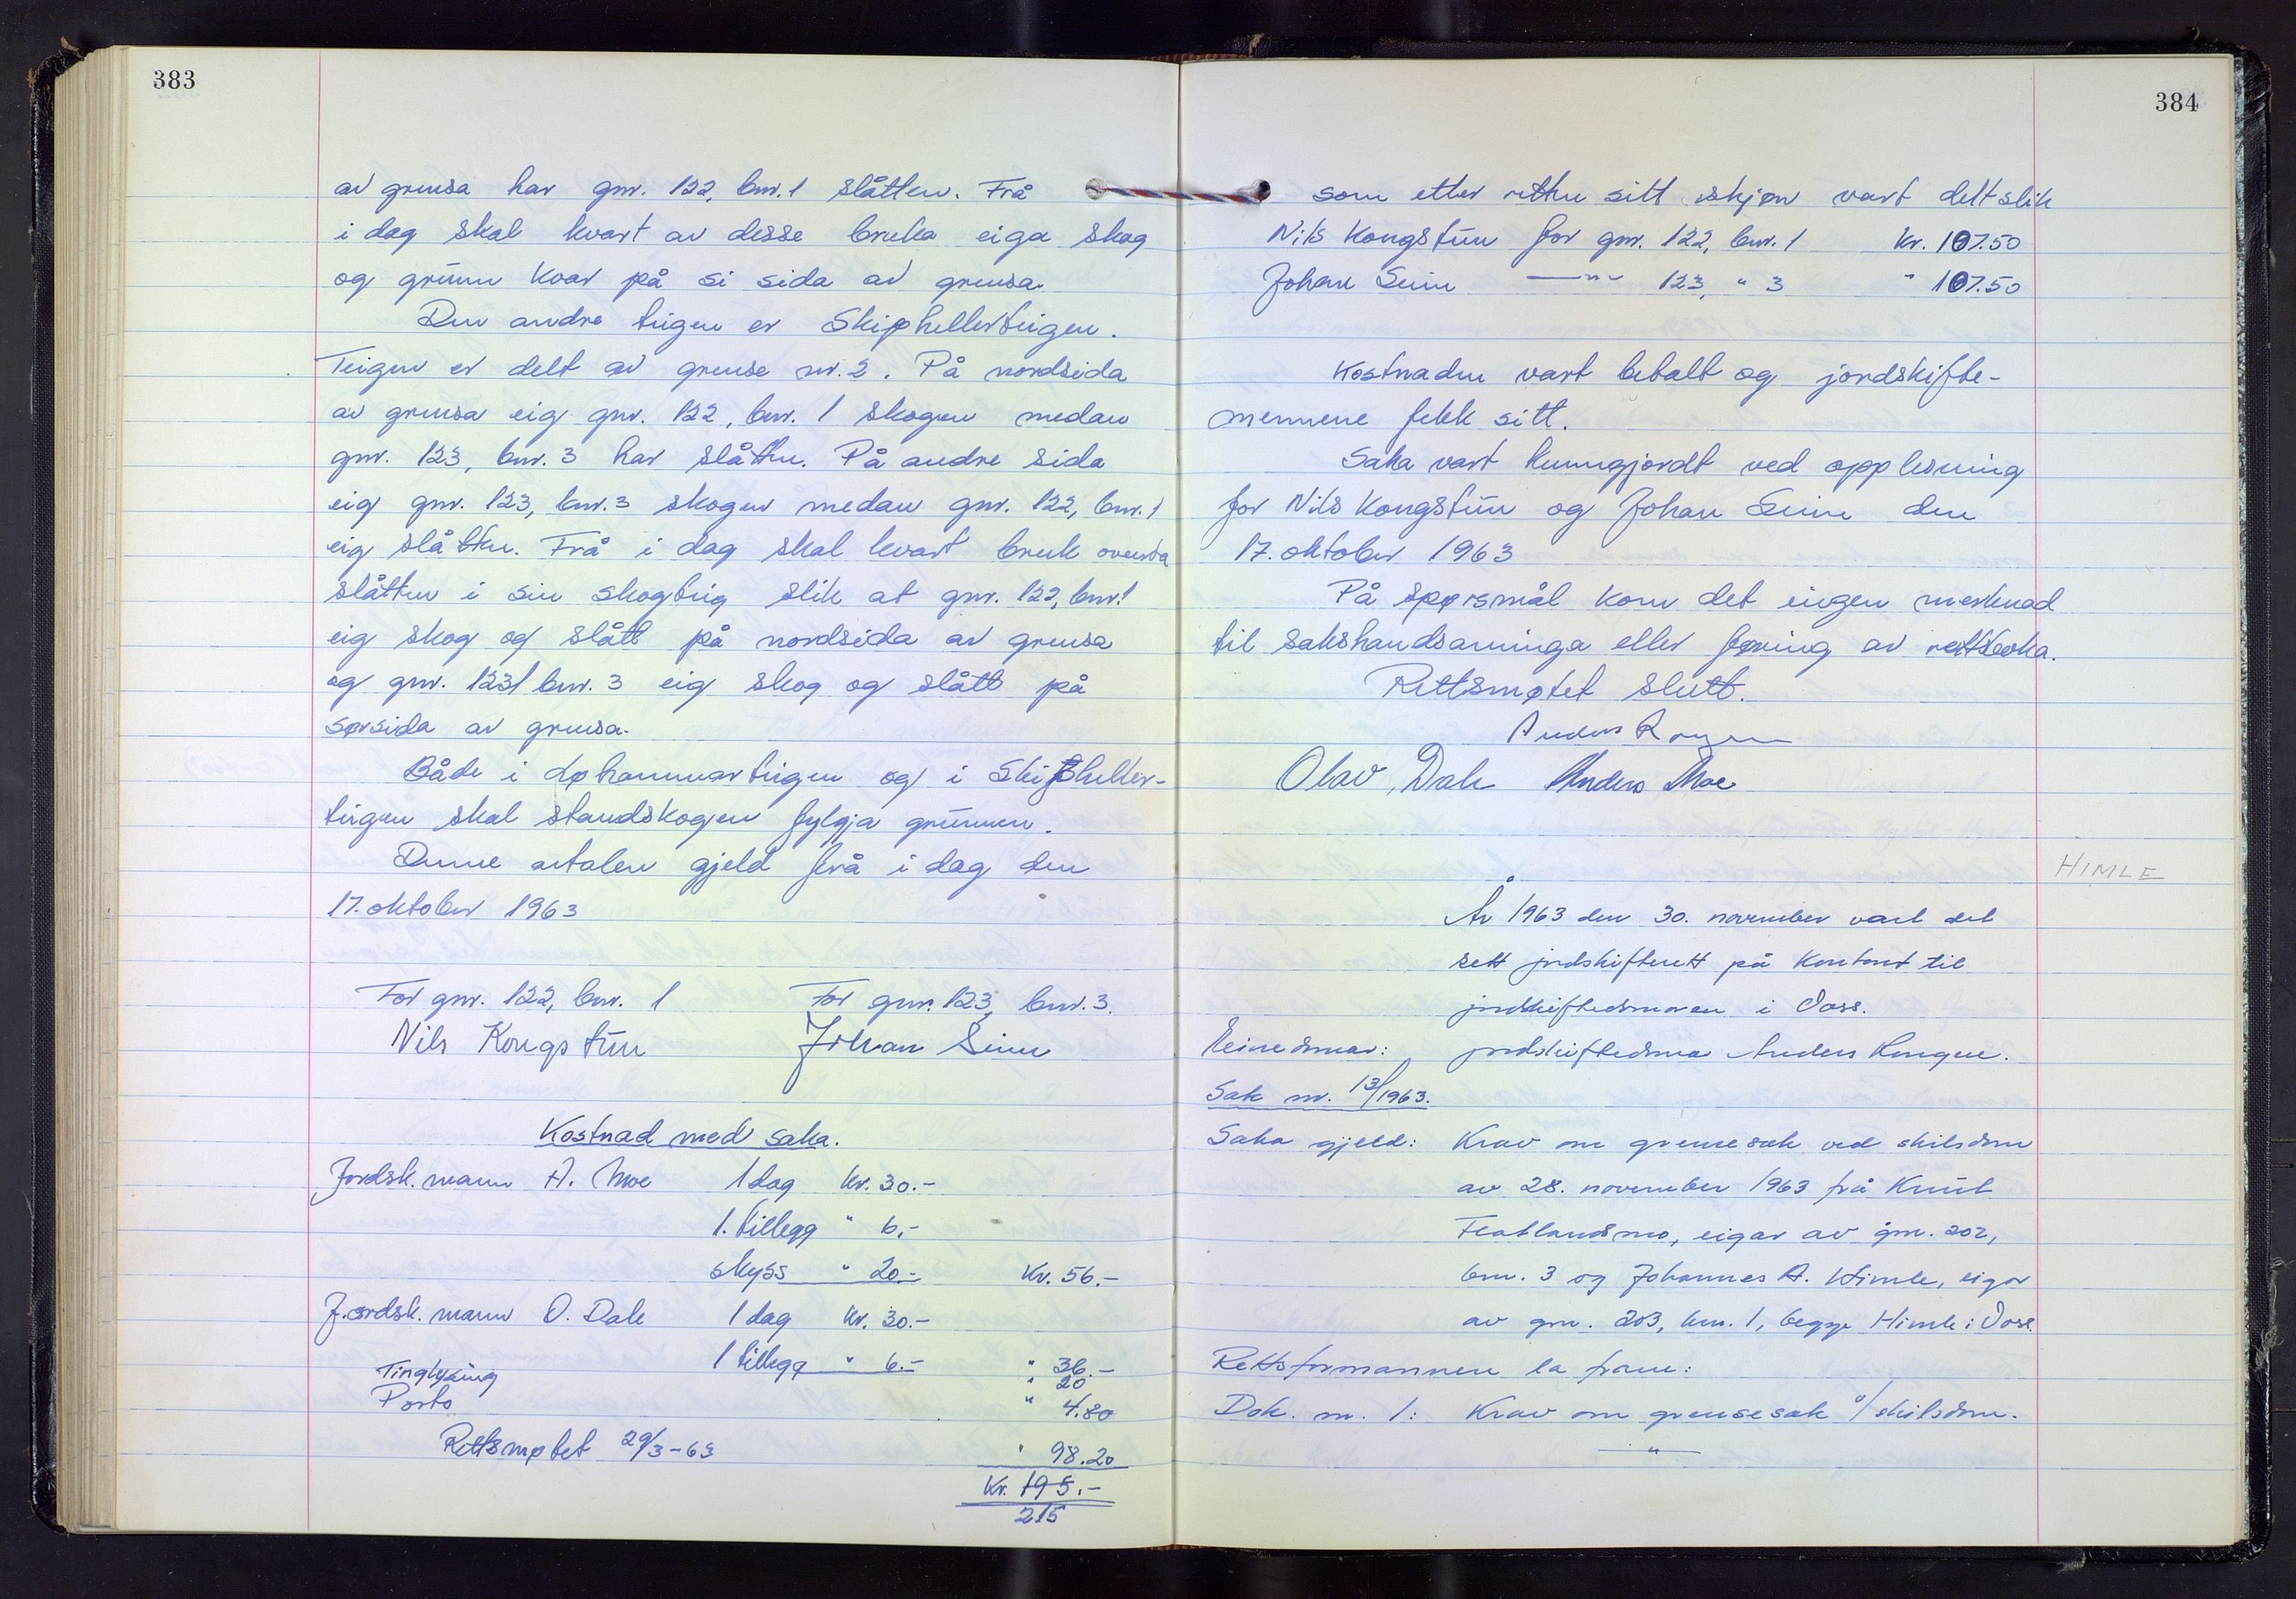 383
av grensa har gnr. 122, bnr. 1 slåtten. Frå
i dag skal kvart av desse bruka eiga skog
og grunn kvar på si sida av grensa.
Den andre teigen er Skiphellerteigen.
Teigen er delt av grense nr. 2. På nordsida
av grensa eig gnr. 122, bnr. 1 skogen medan
gnr. 123, bnr. 3 har slåtten. På andre sida
eig gnr. 123, bnr. 3 skogen medan gnr. 122, bnr. 1
eig slåtten. Frå i dag skal kvart bruk overta
slåtten i sin skogteig slik at gnr. 122, bnr. 1
eig skog og slått på nordsida av grensa
og gnr. 123, bnr. 3 eig skog og slått på
sørsida av grensa.
Både i Løhammarteigen og i Skipheller-
teigen skal standskogen fylgja grunnen.
Denne avtalen gjeld frå i dag den
17. oktober 1963
For gnr. 122, bnr. 1 For gnr. 123, bnr. 3.
Nils Kongstun Johan Seim
Kostnad med saka.
Jordsk. mann A. Moe 1 dag kr. 30.-
1. tillegg " 6,-
skyss " 20.- Kr. 56.-
Jordsk. mann O. Dale 1 dag kr. 30.-
1 tillegg " 6.- " 36.-
Tinglysing " 20
Porto " 4.80
Rettsmøtet 29/3-63 " 98.20
Kr. 195.-
215
384
som etter retten sitt skjøn vart delt slik
Nils Kongstun for gnr. 122, bnr. 1 kr. 107.50
Johan Seim —"— 123, " 3 " 107.50
Kostnaden vart betalt og jordskifte-
mennene fekk sitt.
Saka vart kunngjordt ved opplesning
for Nils Kongstun og Johan Seim den
17. oktober 1963
På spørsmål kom det eingen merknad
til sakshandsaminga eller føring av rettsboka.
Rettsmøtet slutt.
Anders Rongen
Olav Dale Anders Moe
HIMLE
År 1963 den 30. november vart det
sett jordskifterett på kontoret til
jordskiftedomaren i Voss.
Einedomar: jordskiftedomar Anders Rongen.
Sak nr. 13/1963.
Saka gjeld: Krav om grensesak ved skilsdom
av 28. november 1963 frå Knut
Flatlandsmo, eigar av gnr. 202,
bnr. 3 og Johannes A. Himle, eigar
av gnr. 203, bnr. 1, begge Himle i Voss.
Rettsformannen la fram:
Dok. nr. 1: Krav om grensesak o/ skilsdom.
—"—